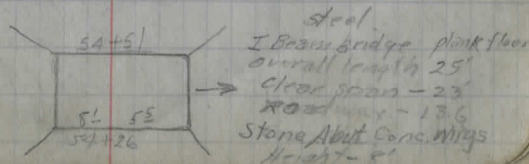 54+51
8¹ 5⁵
54+26
steel
I Beam bridge plank floor
overall length 25'
Clear span - 23'
Roadway - 13.6
Stone Abut Conc. Wings
Height - 8'